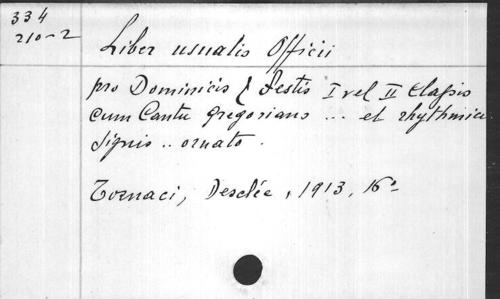 334
210-2
Liber usualis Officii
pro Dominicis & Festis I vel II Classis
cum Cantu Gregoriano ... et rhythmicis
signis .. ornato.
Tornaci, Desclée, 1913, 16º